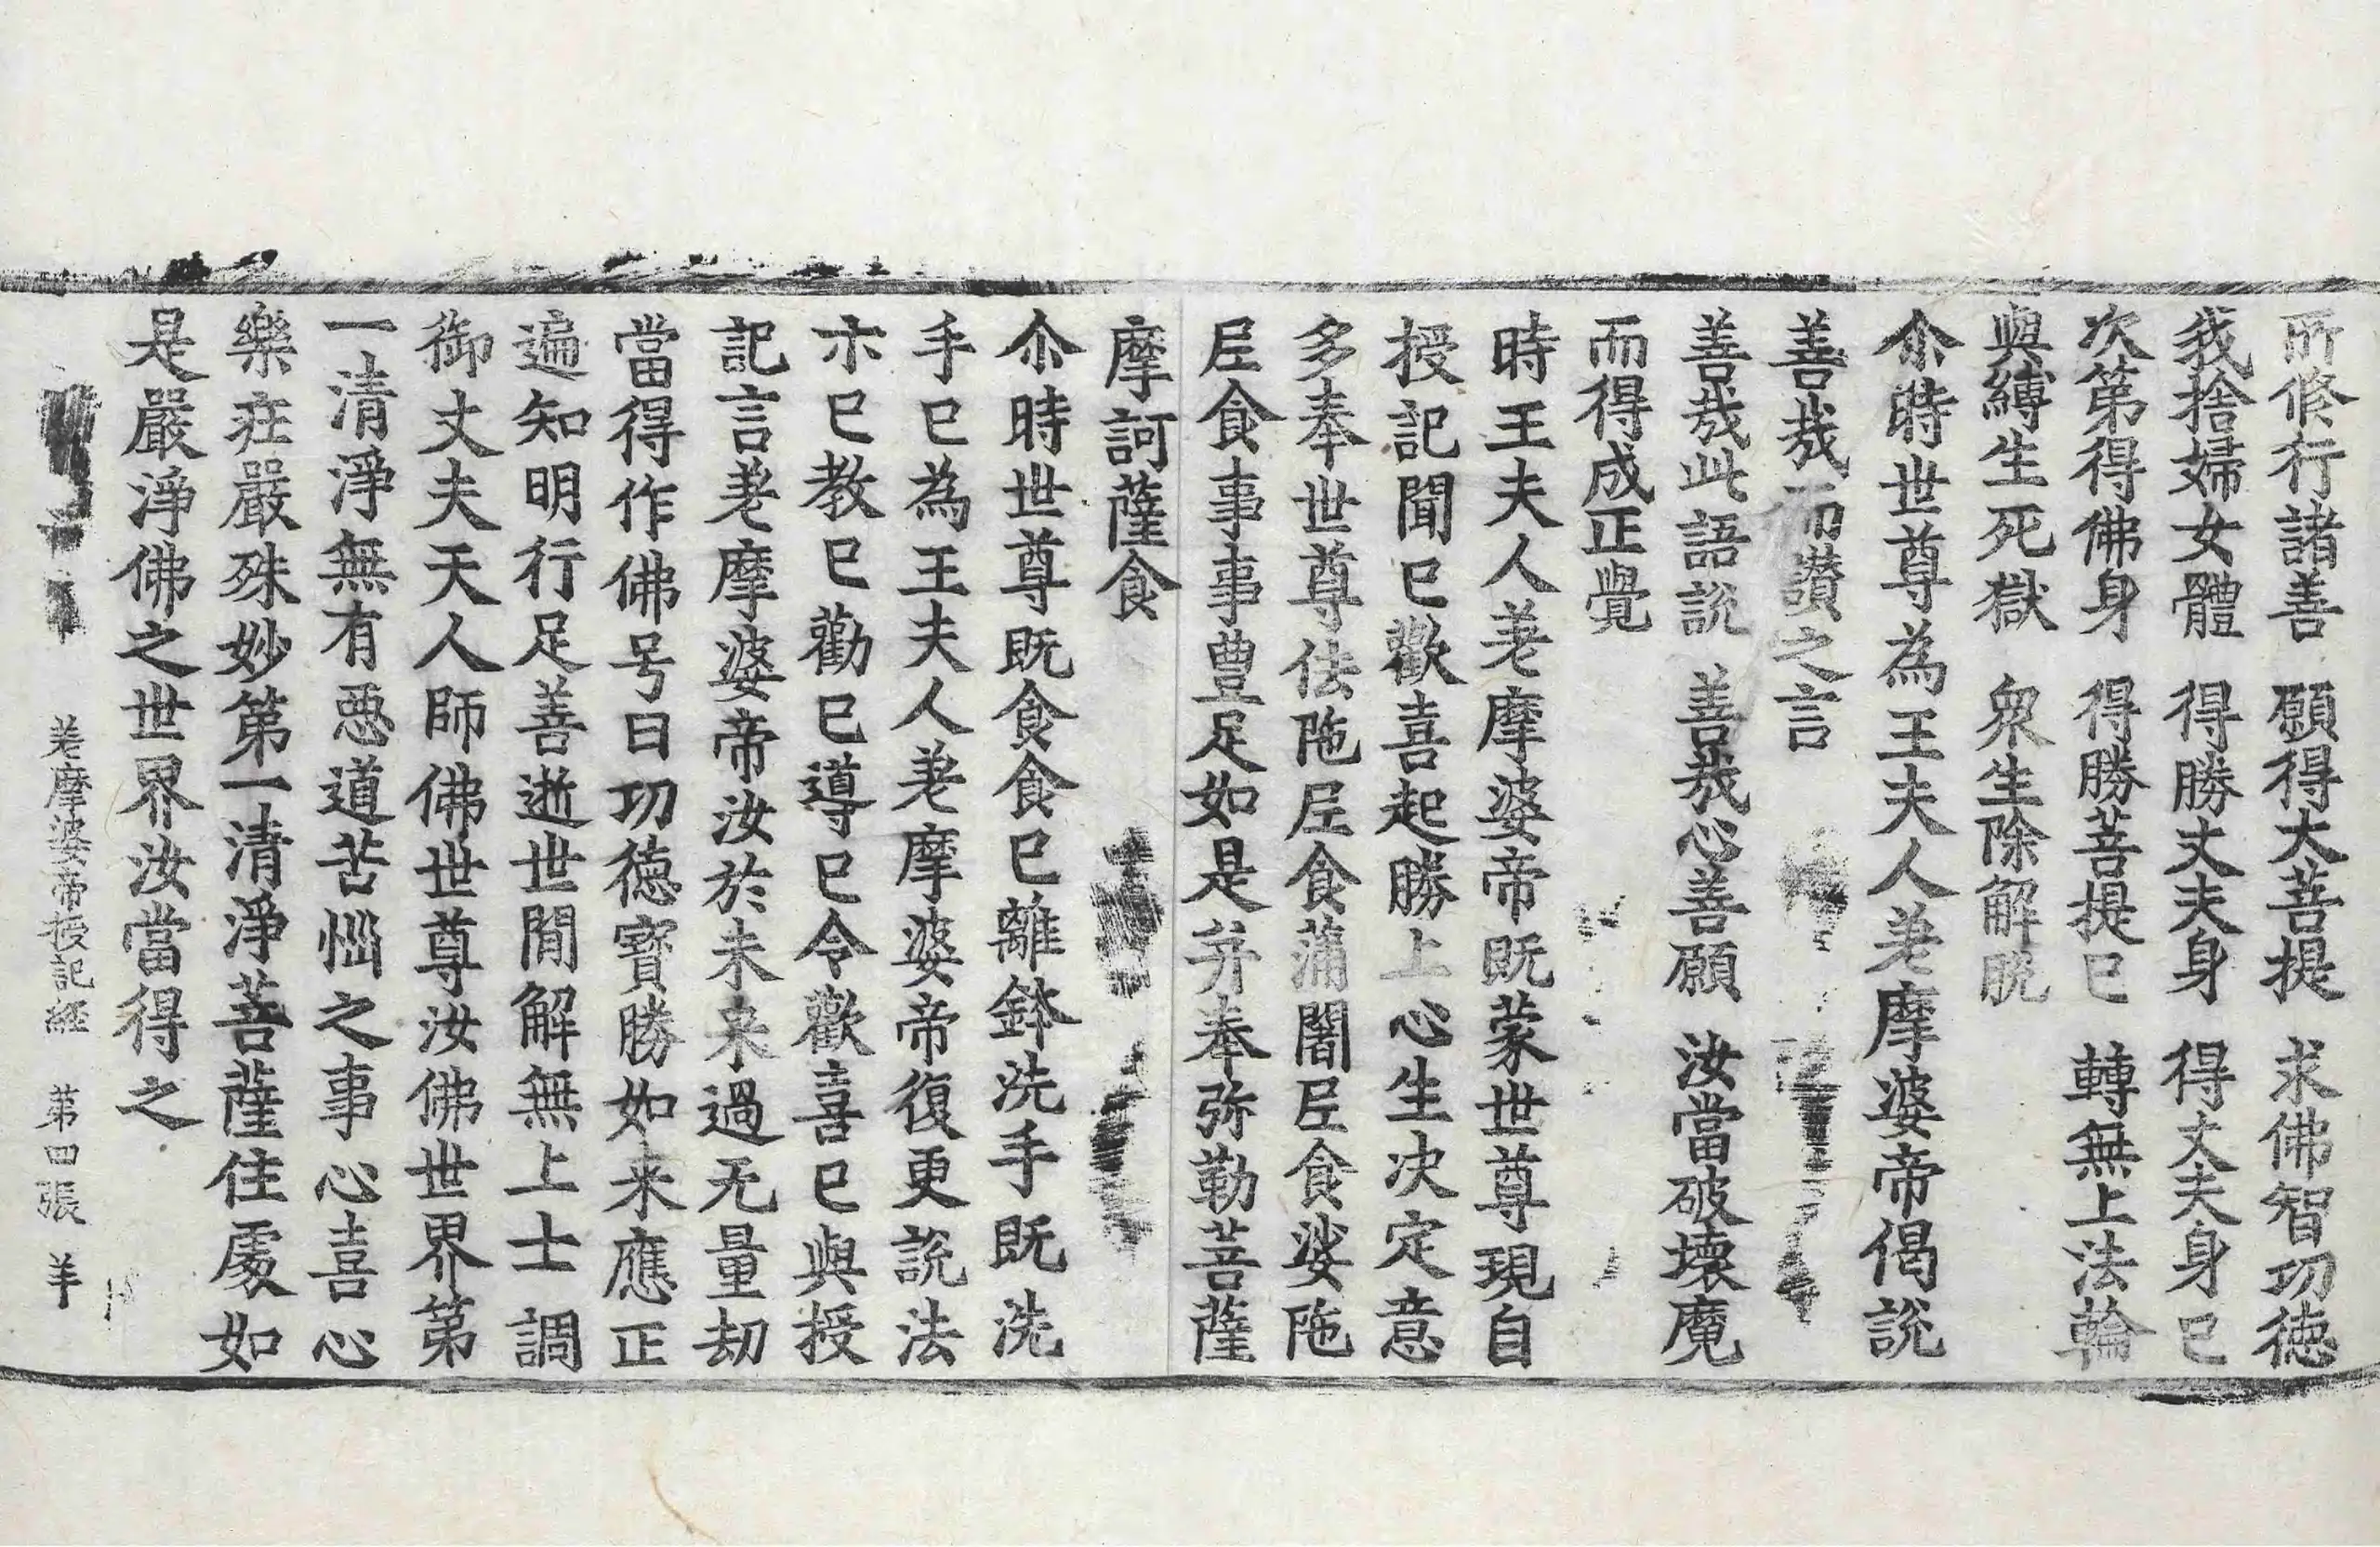 所修行諸善　願得大菩提　求佛智功徳
我捨婦女體　得勝丈夫身　得丈夫身已
次第得佛身　得勝菩提已　轉無上法輪
與縛生死獄　衆生除解脫
尒時世尊為王夫人差摩婆帝偈說
善㢤而讚之言
善㢤此語說　善㢤心善願　汝當破壞魔
而得成正覺
時王夫人差摩婆帝既蒙世尊現自
授記聞已歡喜起勝上心生决定意
多奉世尊佉陁𡰱食蒲闍𡰱食娑陁
𡰱食事事豊足如是并奉弥勒菩薩
摩訶薩食
尒時世尊既食食已離鉢洗手既洗
手已為王夫人差摩婆帝復更說法
示已教已勸已導已令歡喜已與授
記言差摩婆帝汝於未来過无量劫
當得作佛号曰功徳寶勝如来應正
遍知明行足善逝世閒解無上士調
御丈夫天人師佛世尊汝佛世界第
一清淨無有惡道苦惱之事心喜心
樂莊嚴殊妙第一清淨菩薩住處如
是嚴淨佛之世界汝當得之
差摩婆帝授記經　第四張　羊